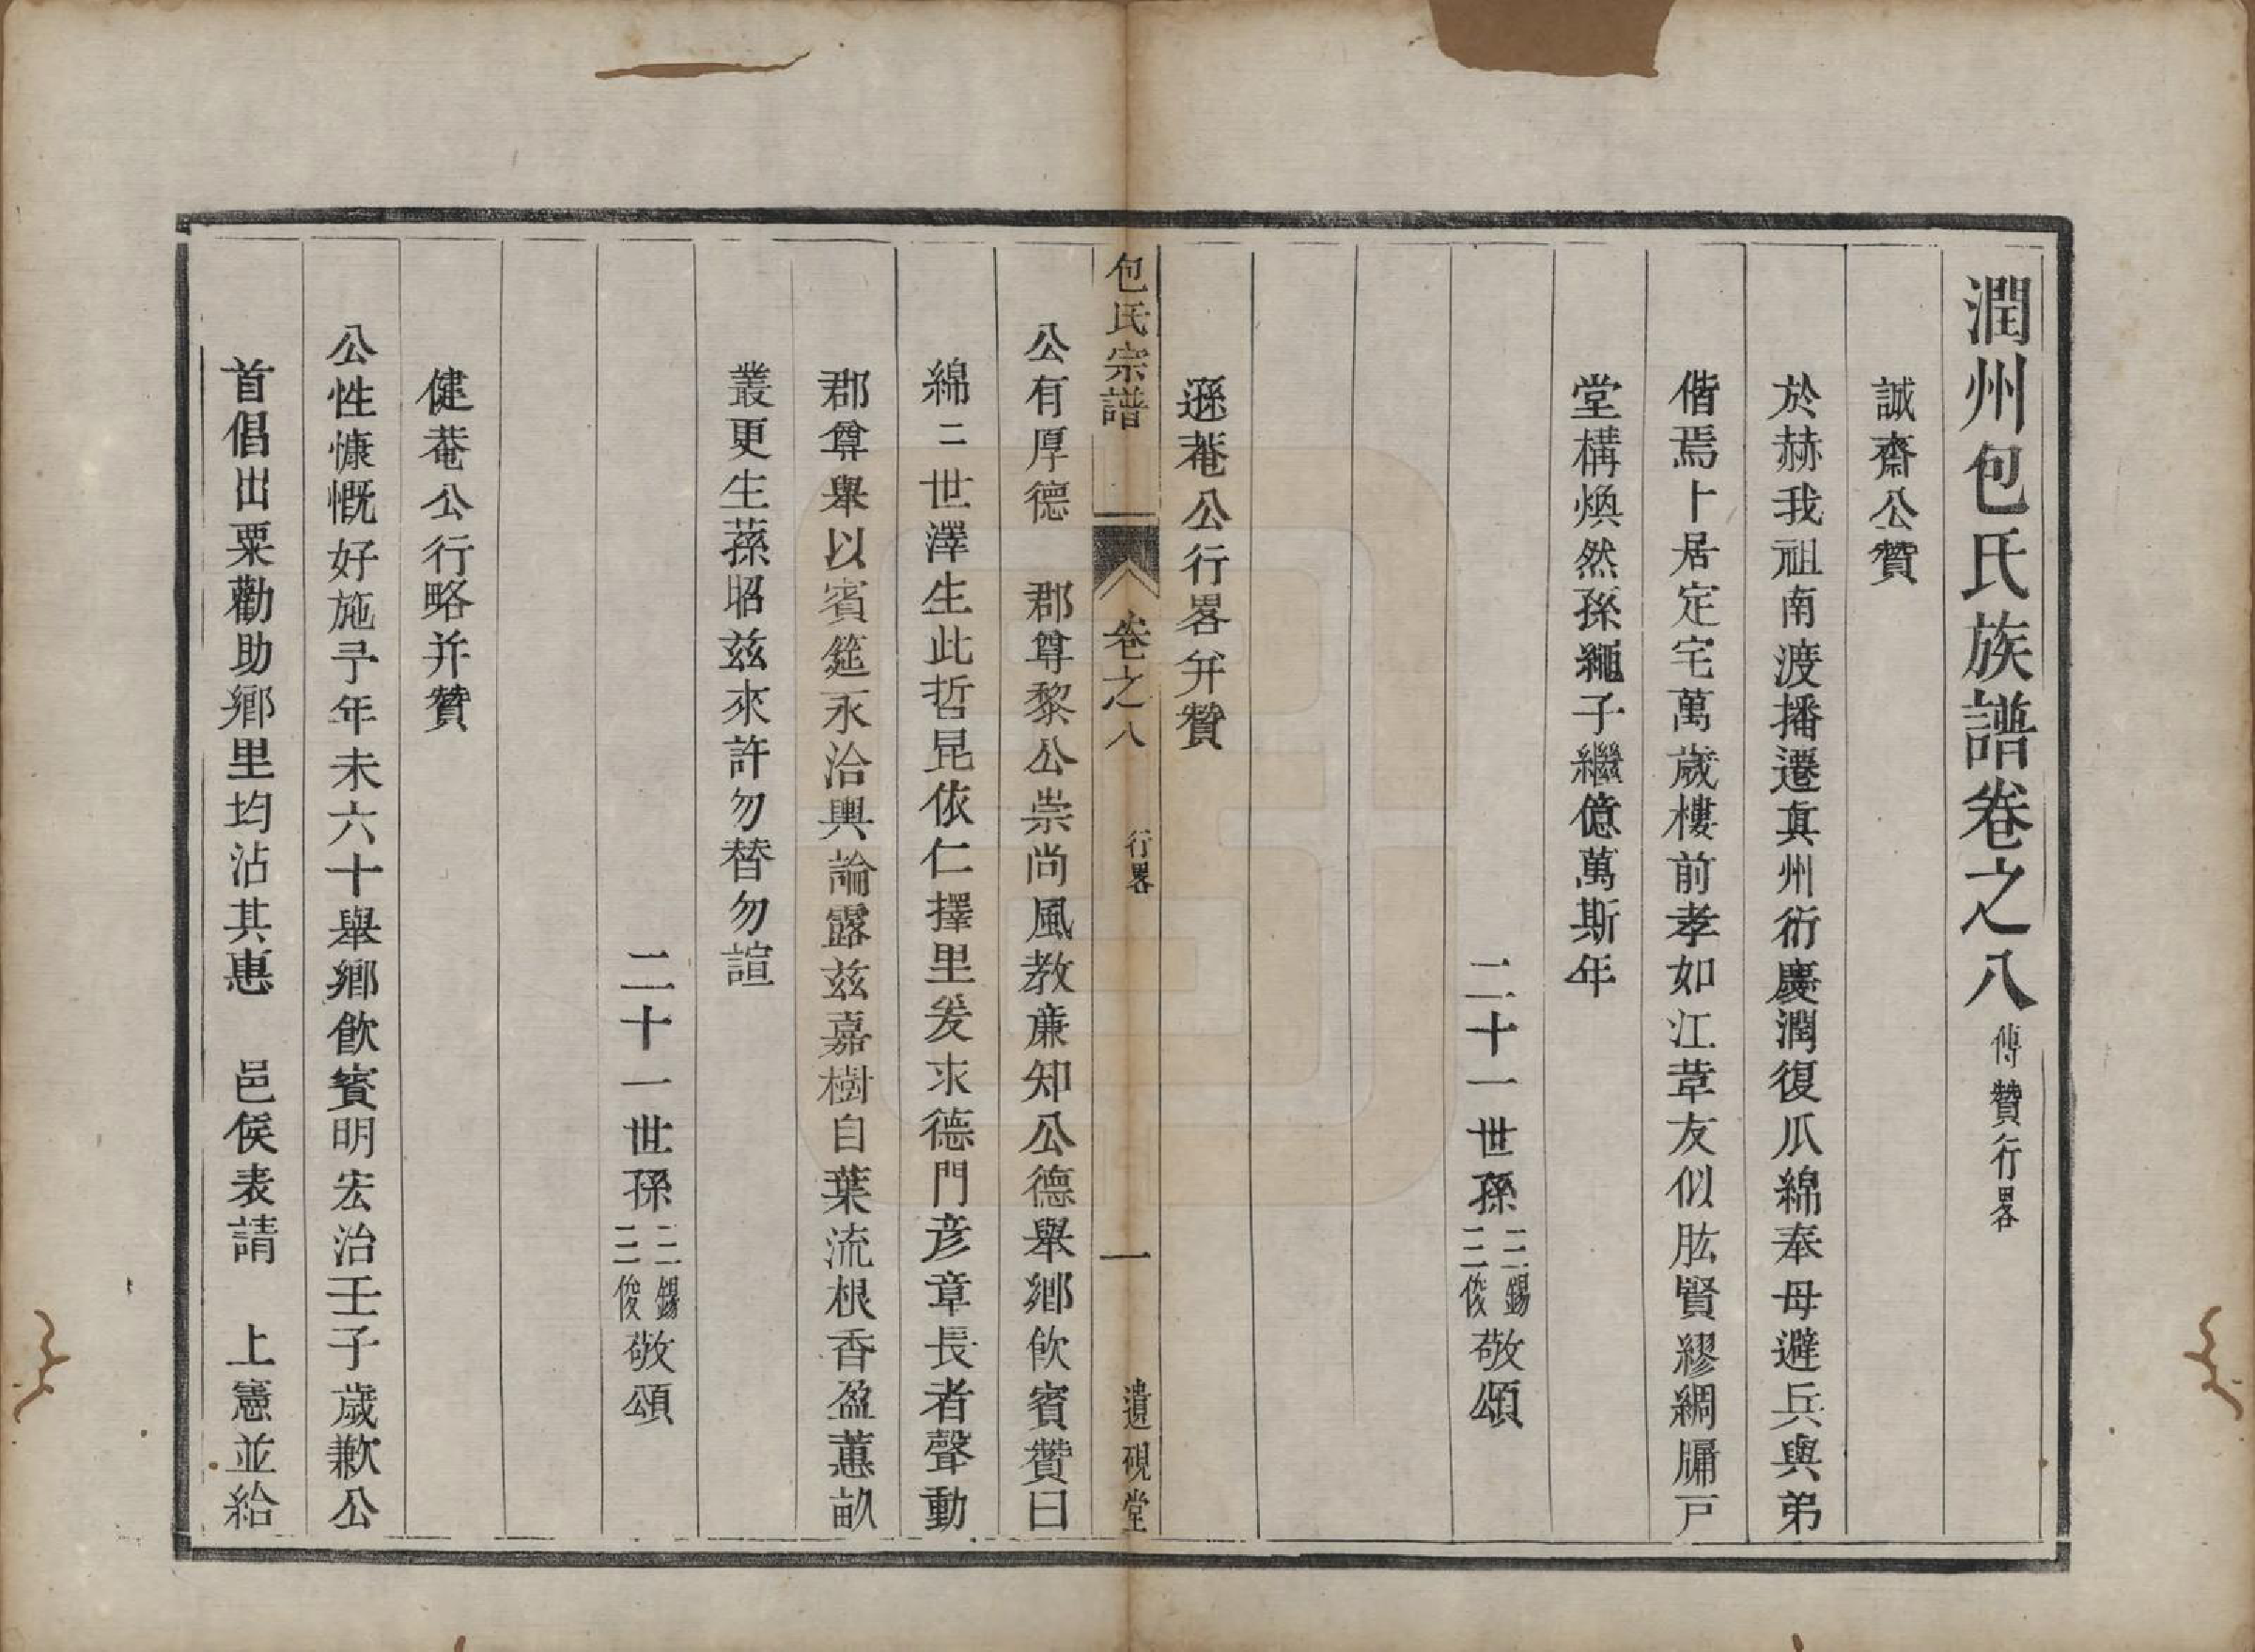 潤州包氏族譜卷之八 傳贊行畧
誠齋公贊
於赫我祖南渡播遷真州衍慶潤復瓜綿奉母避兵與弟
偕焉卜居定宅萬歲樓前孝如江革友似肱賢繆綢牖戸
堂構煥然孫繩子繼億萬斯年
二十一世孫三錫三俊敬頌
遜菴公行畧并贊
包氏宗譜 卷之八 行畧 一 遺硯堂
公有厚德 郡尊黎公崇尚風教廉知公德舉鄉飲賓贊曰
綿二世澤生此哲昆依仁擇里爰求德門彦章長者聲動
郡尊舉以賓筵永洽輿論露兹嘉樹自葉流根香盈蕙畝
叢更生蓀昭兹來許勿替勿諠
二十一世孫三錫三俊敬頌
健菴公行略并贊
公性慷慨好施予年未六十舉鄉飲賓明宏治壬子歲歉公
首倡出粟勸助鄉里均沾其惠 邑侯表請 上憲並給